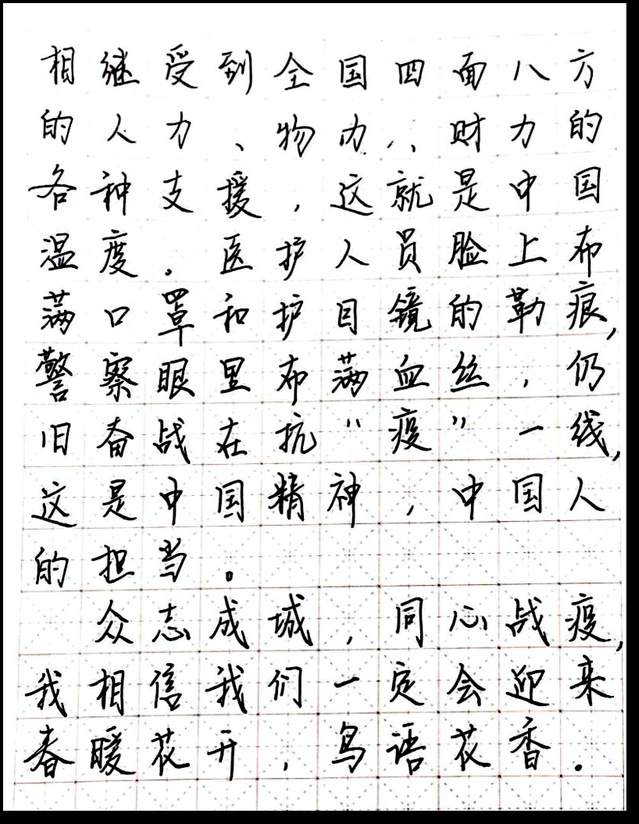 相继受到全国四面八方
的人力、物力、财力的
各种支援，这就是中国
温度。医护人员脸上布
满口罩和护目镜的勒痕，
警察眼里布满血丝，仍
旧奋战在抗“疫”一线，
这是中国精神，中国人
的担当。
众志成城，同心战疫，
我相信我们一定会迎来
春暖花开，鸟语花香。